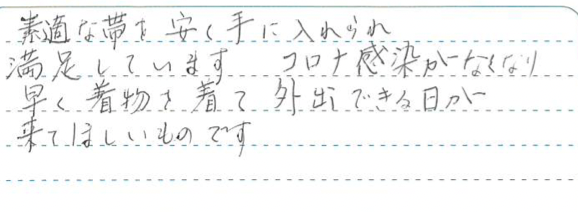 素適な帯を安く手に入れられ
満足しています　コロナ感染がなくなり
早く着物を着て外出できる日が
来てほしいものです